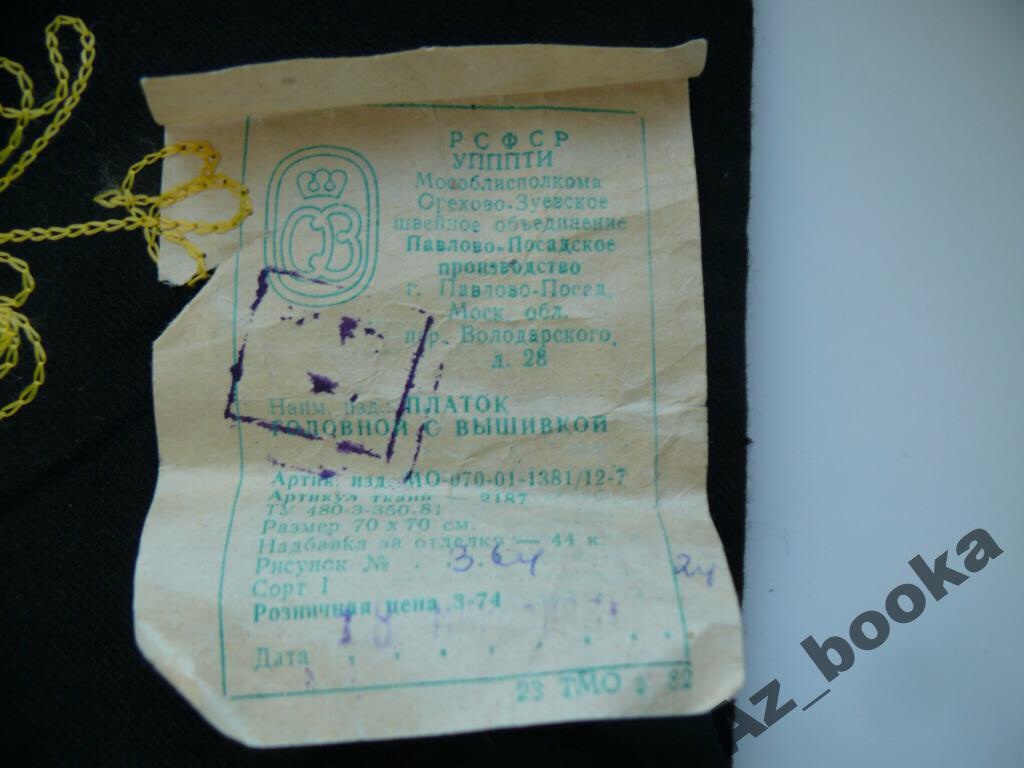 РСФСР
УПППТИ
Мособлисполкома
Орехово-Зуевское
швейное объединение
Павлово-Посадское
производство
г. Павлово-Посад,
Моск. обл.
пер. Володарского,
д. 28
Наим. изд.: ПЛАТОК
ГОЛОВНОЙ С ВЫШИВКОЙ
Артик. изд. МО-070-01-1381/12-7
Артикул ткани — 2187
ТУ 480-3-350-81
Размер 70 х 70 см.
Надбавка за отделку — 44 к.
Рисунок № 3.64 24
Сорт I
Розничная цена 3-74
Дата
23 ТМО з 82
Az_booka